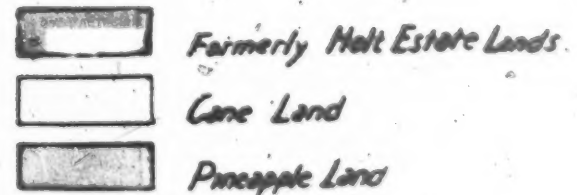 Formerly Holt Estate Lands
Cane Land
Pineapple Land